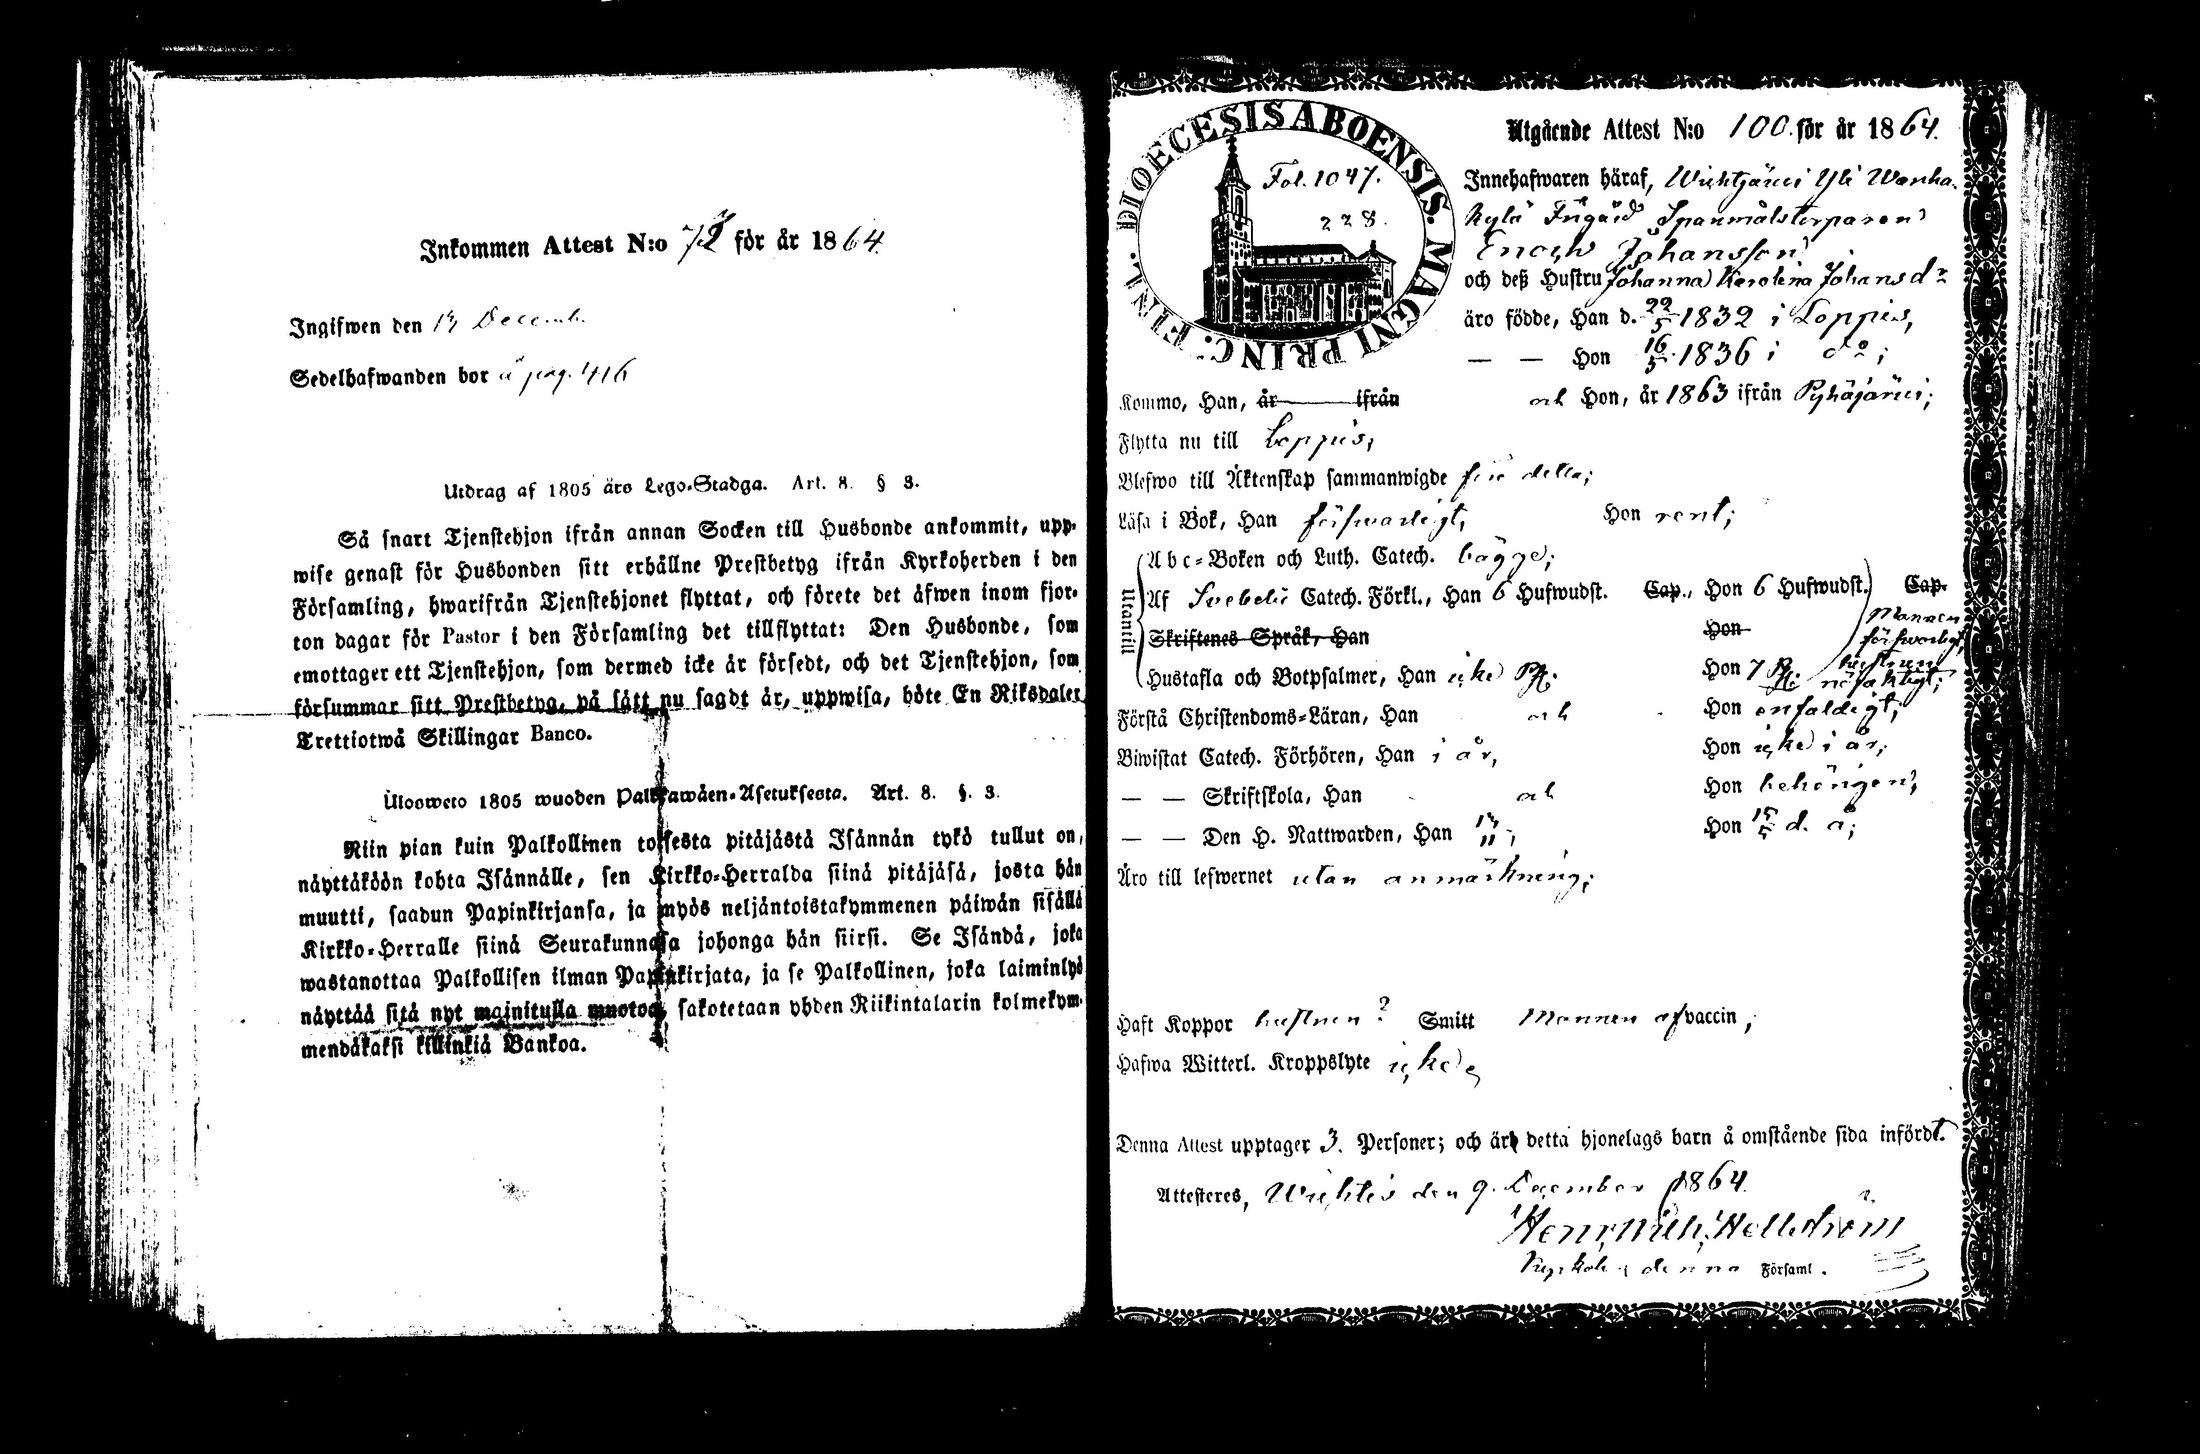 Inkommen Attest N:o 72 för år 1864.
Ingifwen den 13 Decemb.
Sedelhafwanden bor å pag. 416
Utdrag af 1805 års Lego-Stadga. Art. 8. § 3.
Så snart Tjenstehjon ifrån annan Socken till Husbonde ankommit, upp-
wise genast för Husbonden sitt erhållne Prestbetyg ifrån Kyrkoherden i den
Församling, hwarifrån Tjenstehjonet flyttat, och förete det äfwen inom fjor-
ton dagar för Pastor i den Församling det tillflyttat: Den Husbonde, som
emottager ett Tjenstehjon, som dermed icke är försedt, och det Tjenstehjon, som
försummar sitt Prestbetyg, på sätt nu sagdt är, uppwisa, böte En Riksdaler
Trettiotwå Skillingar Banco.
Ulosweto 1805 wuoden Palkkawäen-Asetuksesta. Art. 8. §. 3.
Niin pian kuin Palkollinen toisesta pitäjästä Isännän tykö tullut on,
näyttäköön kohta Isännälle, sen Kirkko-Herralda siinä pitäjäsä, josta hän
muutti, saadun Papinkirjansa, ja myös neljäntoistakymmenen päiwän sisällä
Kirkko-Herralle siinä Seurakunnasa johonga hän siirsi. Se Isändä, joka
wastanottaa Palkollisen ilman Papinkirjata, ja se Palkollinen, joka laiminlyö
näyttää sitä nyt mainitulla muotoa, sakotetaan yhden Riikintalarin kolmekym-
mendäkaksi killinkiä Bankoa.
DIOECESIS ABOENSIS. MAGNI PRINC: FINL.
Fol. 1047.
228.
Utgående Attest N:o 100. för år 1864.
Innehafwaren häraf, Wichtjärwi Yli Wanha-
kylä Fugård Spanmålstorparen
Enoch Johansson
och deß Hustru Johanna Karolina Johansdr
äro födde, Han d. 22/5 1832 i Loppis,
— — Hon 16/5 1836 i do;
Kommo, Han, år ifrån och Hon, år 1863 ifrån Pyhäjärwi;
Flytta nu till Loppis;
Blefwo till Äktenskap sammanwigde före detta;
Läsa i Bok, Han förswarligt, Hon rent;
Utantill
Abc-Boken och Luth. Catech. bägge;
Af Svebelii Catech. Förkl., Han 6 Hufwudst. Cap., Hon 6 Hufwudst. Cap.
Skriftenes Språk, Han Hon
Mannen
förswarligt,
hustrun
nöjaktigt;
Hustafla och Botpsalmer, Han icke Ps. Hon 7 Ps.
Förstå Christendoms-Läran, Han och Hon enfaldigt;
Biwistat Catech. Förhören, Han i år, Hon icke i år;
— — Skriftskola, Han och Hon behörigen;
— — Den H. Nattwarden, Han 13/11, Hon 15/5 d. å;
Äro till lefwernet utan anmärkning;
Haft Koppor hustrun? Smitt Mannen af vaccin;
Hafwa Witterl. Kroppslyte icke;
Denna Attest upptager 3. Personer; och är detta hjonelags barn å omstående sida infördt.
Attesteres, Wichtis den 9. December 1864.
Henr. Wilh. Hellström
Kyrkoh. i denna Församl.